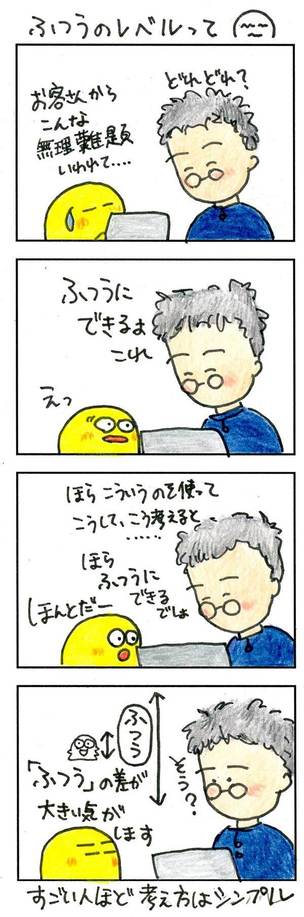 ふつうのレベルって
どれどれ?
お客さんから
こんな
無理難題
いわれて....
ふつうに
できるよ
これ
えっ
ほら こういうのを使って
こうして、こう考えると
.....
ほら
ふつうに
できる
でしょ
ほんとだー
ふつう
そう?
「ふつう」の差が
大きい点が
します
すごい人ほど 考え方はシンプル